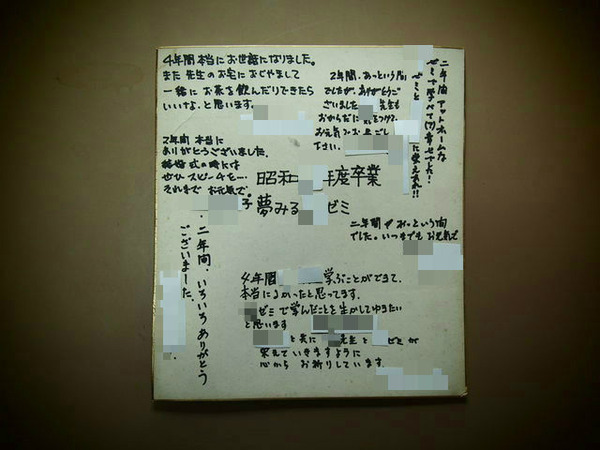 4年間本当にお世話になりました。
また先生のお宅におじゃまして
一緒にお茶を飲んだりできたら
いいな、と思います。
2年間、あっという間
でしたが、ありがとうご
ざいました 先生も
おからだに 気をつけて
お元気でお ごし
下さい。
二年間アットホームな
ゼミで学べて幸せでした!
ゼミと
に栄えあれ!!
2年間 本当に
ありがとうございました。
結婚式の時には
ぜひスピーチを…
それまで お元気で。
昭和 年度卒業
子 夢みる ゼミ
二年間 あっという間
でした。いつまでも お元気で
二年間、いろいろ ありがとう
ございました。
4年間 学ぶことができて、
本当によかったと思ってます。
ゼミで学んだことを生かしてゆきたい
と思います
と共に 先生と ゼミが
栄えていきますように
心から お祈りしています。